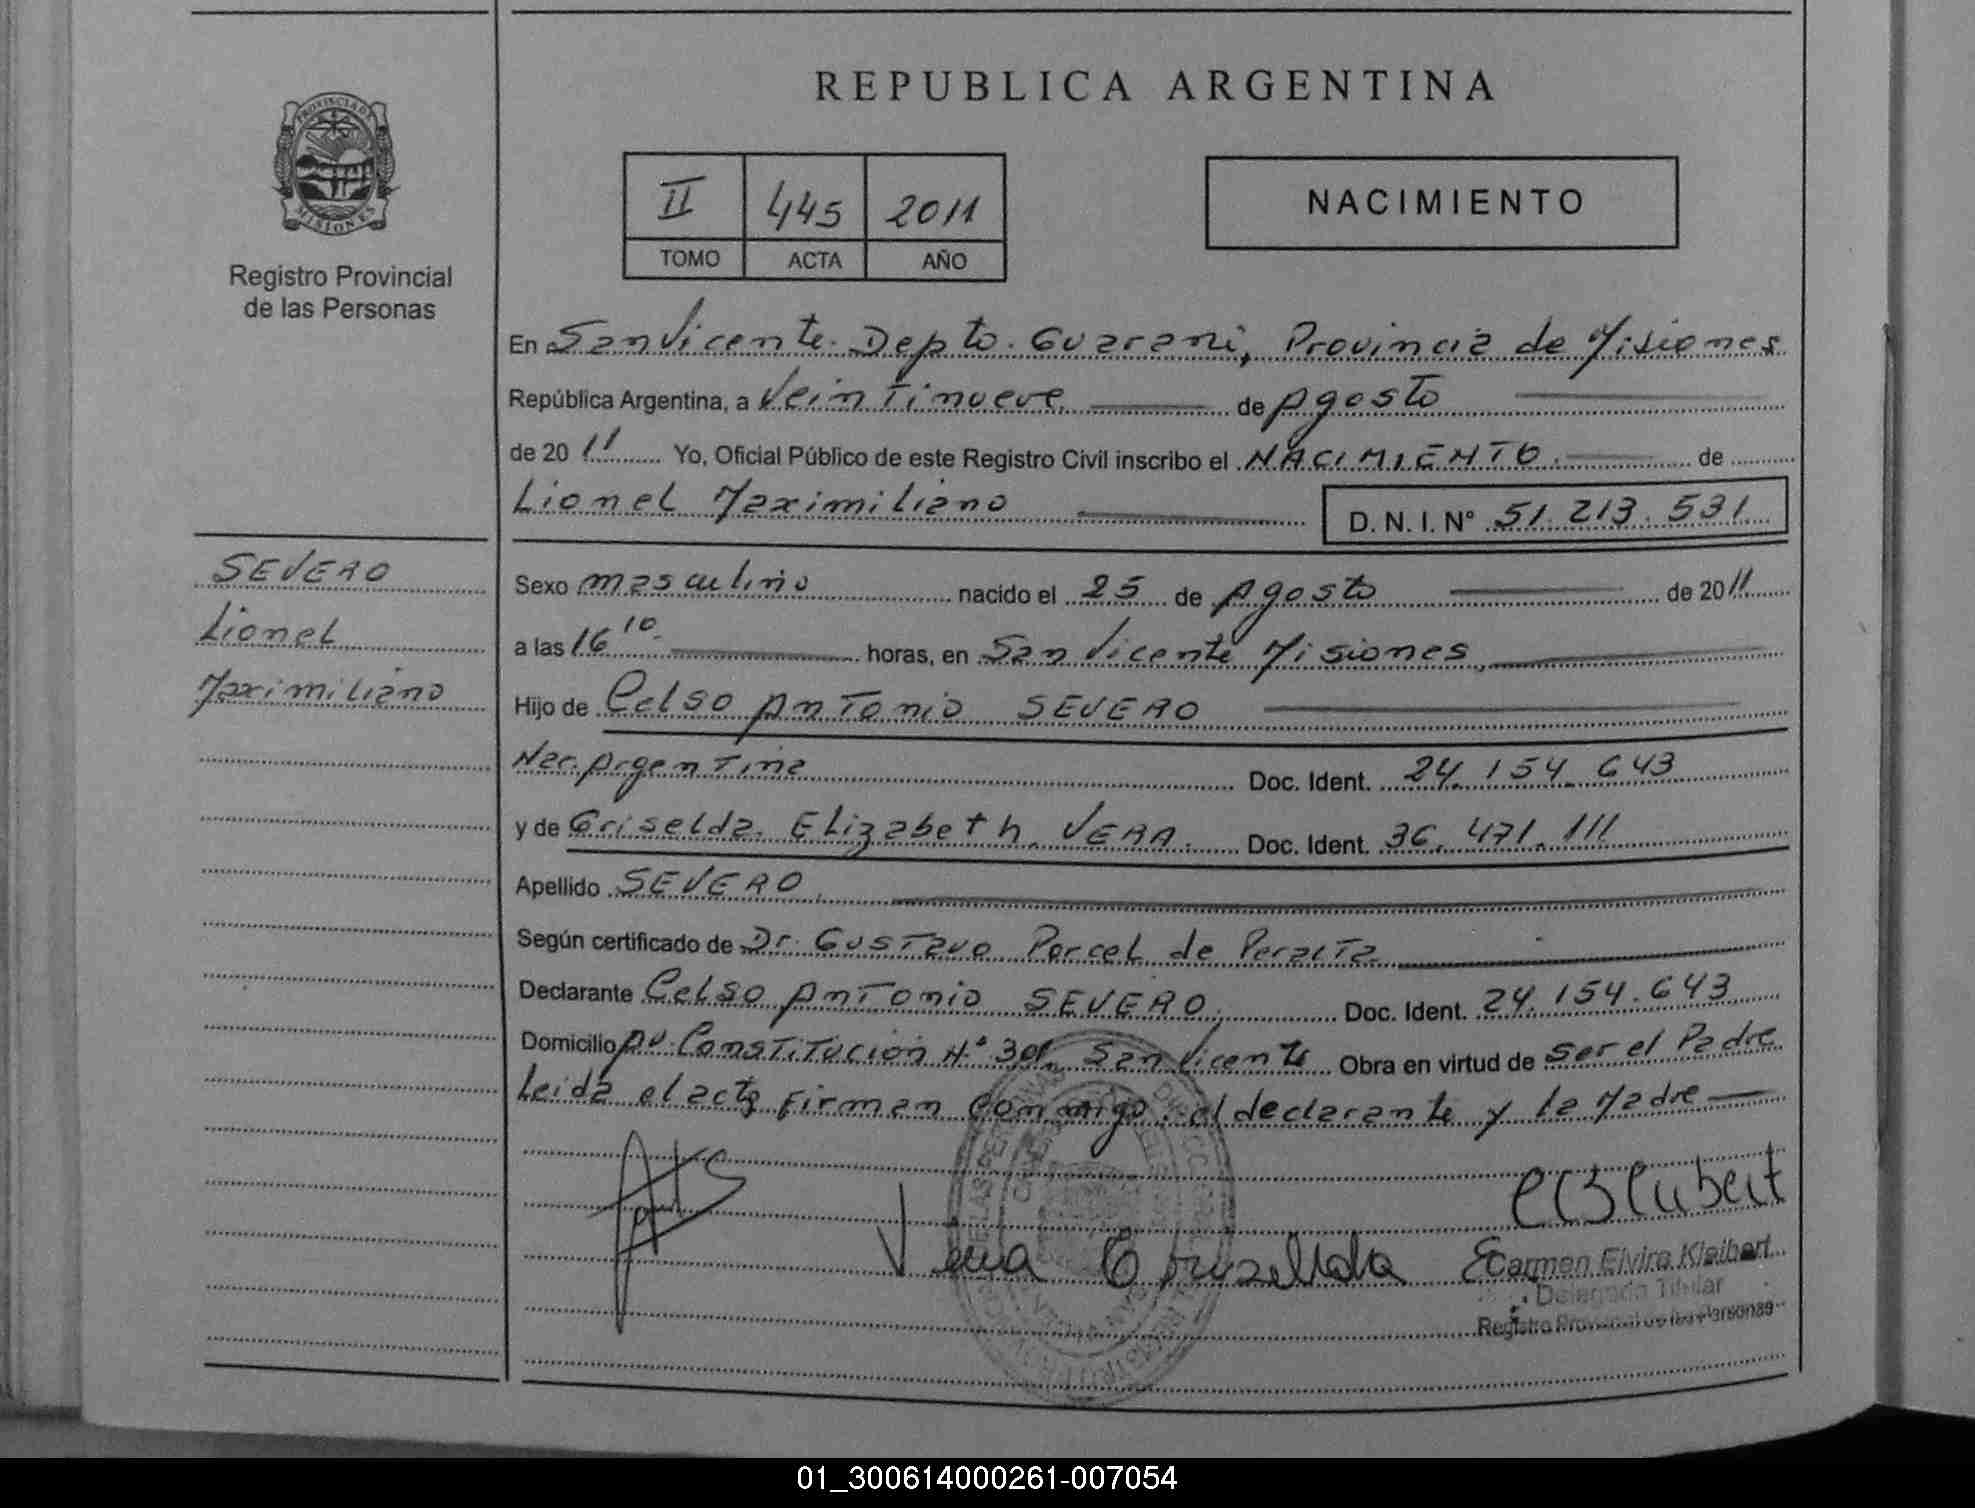 REPUBLICA ARGENTINA
PROVINCIA DE
MISIONES
Registro Provincial
de las Personas
II 445 2011
TOMO ACTA AÑO
NACIMIENTO
En San Vicente. Depto. Guarani, Provincia de Misiones
República Argentina, a Veintinueve de Agosto
de 2011 Yo, Oficial Público de este Registro Civil inscribo el NACIMIENTO. de
Lionel Maximiliano D. N. I. N° 51.213.531
SEVERO
Lionel
Maximiliano
Sexo masculino nacido el 25 de Agosto de 2011
a las 16 10 horas, en San Vicente Misiones,
Hijo de Celso Antonio SEVERO
Nac. Argentina Doc. Ident. 24.154.643
y de Griselda. Elizabeth. VERA. Doc. Ident. 36.471.111
Apellido SEVERO.
Según certificado de Dr. Gustavo Porcel de Peralta
Declarante Celso Antonio SEVERO. Doc. Ident. 24.154.643
Domicilio Av. Constitución N.° San Vicente Obra en virtud de ser el Padre
Leida el acta Firman conmigo: el declarante y la Madre
Vera Griselda
Carmen Elvira Kleibert
Delegada Titular
Registro Provincial de las Personas
01_300614000261-007054